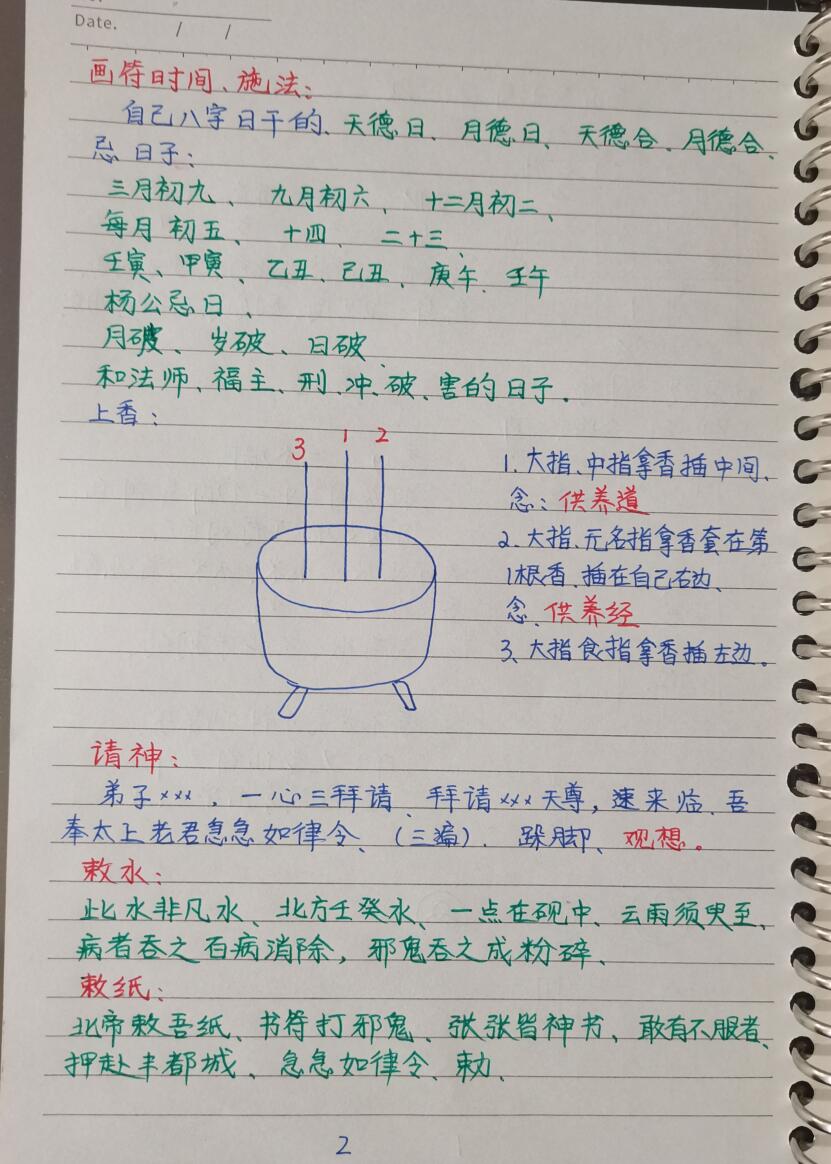 Date. / /
画符时间、施法：
自己八字日干的、天德日、月德日、天德合、月德合、
忌日子：
三月初九、九月初六、十二月初二、
每月初五、十四、二十三、
壬寅、甲寅、乙丑、己丑、庚午、壬午
杨公忌日、
月破、岁破、日破、
和法师、福主、刑、冲、破、害的日子。
上香：
3 1 2
1.大指、中指拿香插中间、
念：供养道
2、大指、无名指拿香套在第
1根香、插在自己右边、
念、供养经
3、大指食指拿香插左边。
请神：
弟子xxx，一心三拜请、拜请xxx天尊，速来临、吾
奉太上老君急急如律令、（三遍）．跺脚、观想。
敕水：
此水非凡水、北方壬癸水、一点在砚中、云雨须臾至、
病者吞之百病消除，邪鬼吞之成粉碎、
敕纸：
北帝敕吾纸、书符打邪鬼、张张皆神书、敢有不服者、
押赴丰都城、急急如律令、敕、
2